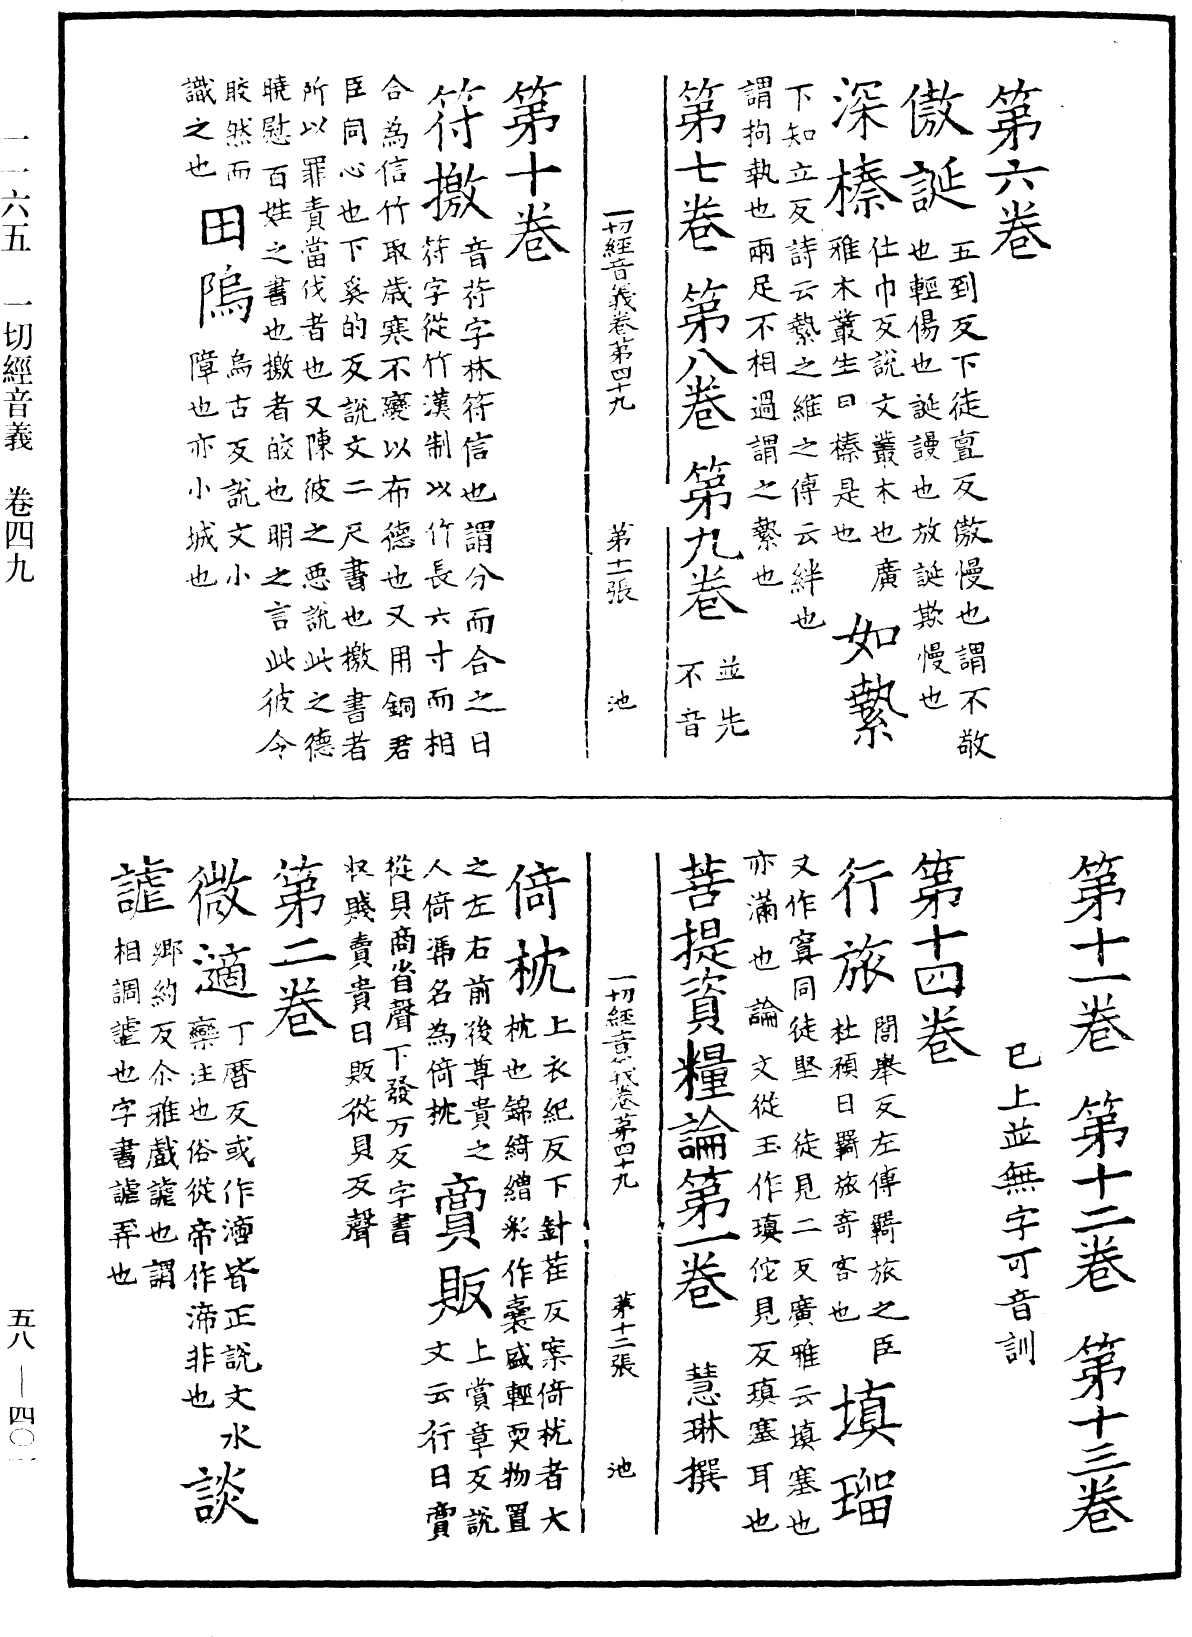 第六卷
傲誕 五到反下徒亶反傲慢也謂不敬
也輕傷也誕謾也放誕欺慢也
深榛 仕巾反說文叢木也廣
雅木叢生曰榛是也 如縶
下知立反詩云縶之維之傳云絆也
謂拘執也兩足不相過謂之縶也
第七卷 第八卷 第九卷 並先
不音
一切經音義卷第四十九 第十一張 池
第十卷
符檄 音苻字林符信也謂分而合之曰
符字從竹漢制以竹長六寸而相
合為信竹取歲寒不變以布德也又用銅君
臣同心也下奚的反說文二尺書也檄書者
所以罪責當伐者也又陳彼之惡說此之德
曉慰百姓之書也檄者皎也明之言此彼令
晈然而
識之也 田隖 烏古反說文小
障也亦小城也
第十一卷 第十二卷 第十三卷
已上並無字可音訓
第十四卷
行旅 閭舉反左傳羇旅之臣
杜預曰羇旅寄客也 填瑠
又作寘同徒堅 徒見二反廣雅云填塞也
亦滿也論 文從玉作瑱佗見反瑱塞耳也
菩提資糧論第一卷 慧琳撰
一切經音義卷第四十九 第十二張 池
倚枕 上衣紀反下針荏反案倚枕者大
枕也錦綺繒綵作囊盛輕耎物置
之左右前後尊貴之
人倚馮名為倚枕 賣販 上賞章反說
文云行曰賣
從貝商省聲下發万反字書
収賤賣貴曰販從貝反聲
第二卷
微適 丁曆反或作渧皆正說文水
欒注也俗從帝作渧非也 談
謔 鄉約反尒雅戲謔也謂
相調謔也字書謔弄也
一一六五 一切經音義 卷四九
五八—四〇一